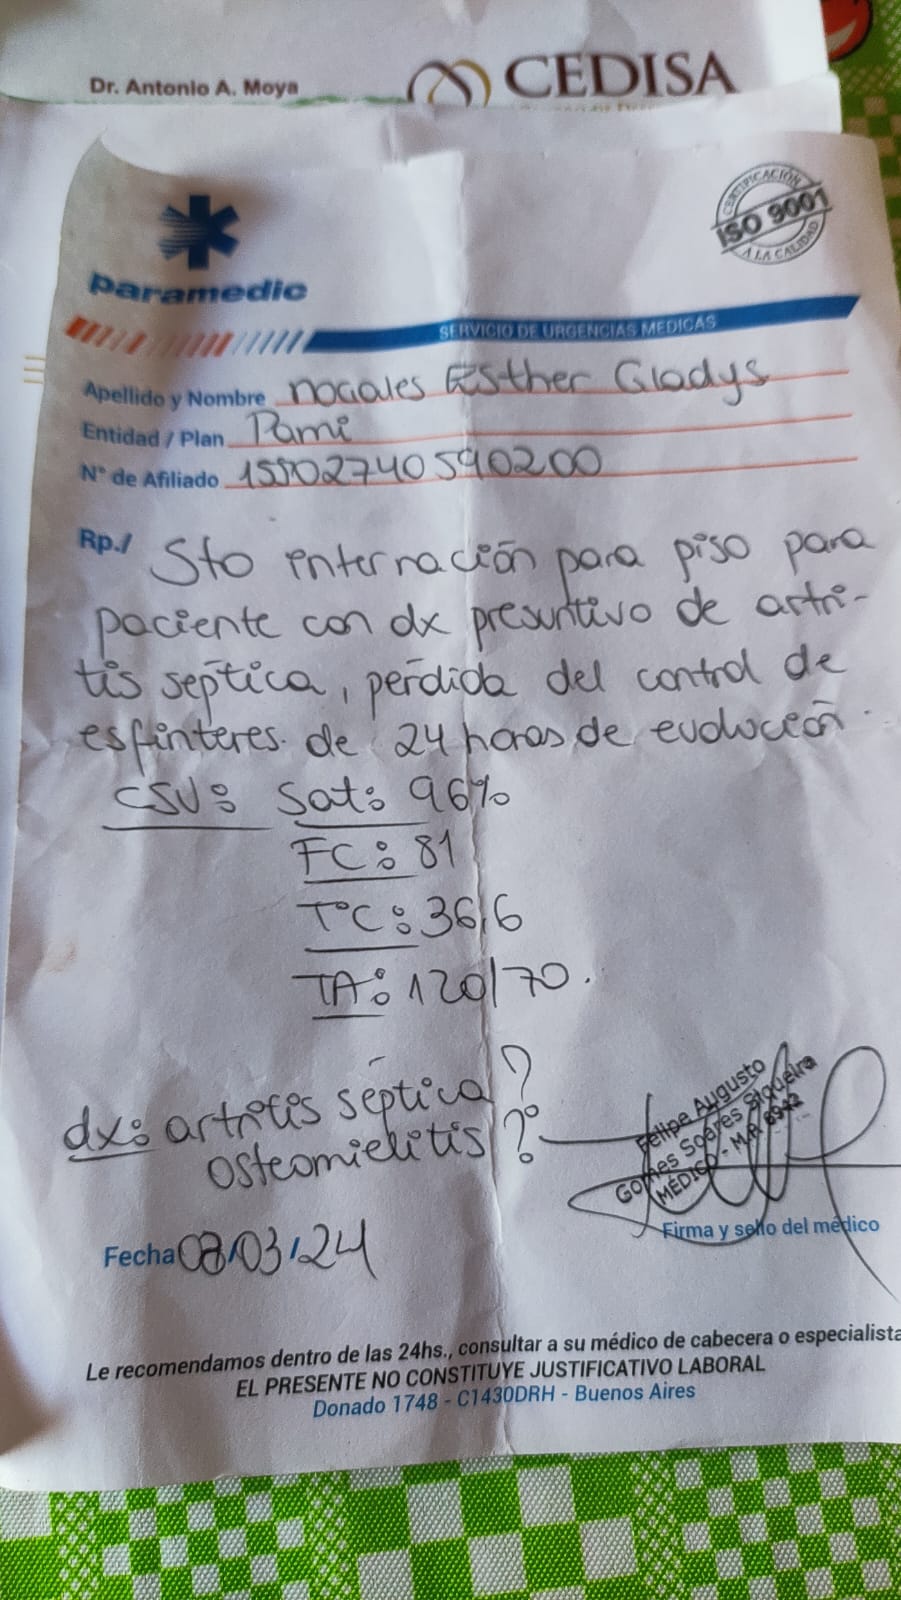 Dr. Antonio A. Moya
CEDISA
CERTIFICACIÓN
ISO 9001
A LA CALIDAD
paramedic
SERVICIO DE URGENCIAS MEDICAS
Apellido y Nombre Nogales Esther Gladys
Entidad / Plan Pami
N° de Afiliado 15502740590200
Rp./ Sto internación para piso para
paciente con dx presuntivo de artri-
tis séptica, pérdida del control de
esfinteres. de 24 horas de evolución.
CSV: Sat: 96%
FC: 81
T°C: 36,6
TA: 120/70.
dx: artritis séptica?
osteomielitis?
Felipe Augusto
Gomes Soares Siqueira
MÉDICO - M.P. 6942
Firma y sello del médico
Fecha 08/03/24
Le recomendamos dentro de las 24hs., consultar a su médico de cabecera o especialista
EL PRESENTE NO CONSTITUYE JUSTIFICATIVO LABORAL
Donado 1748 - C1430DRH - Buenos Aires